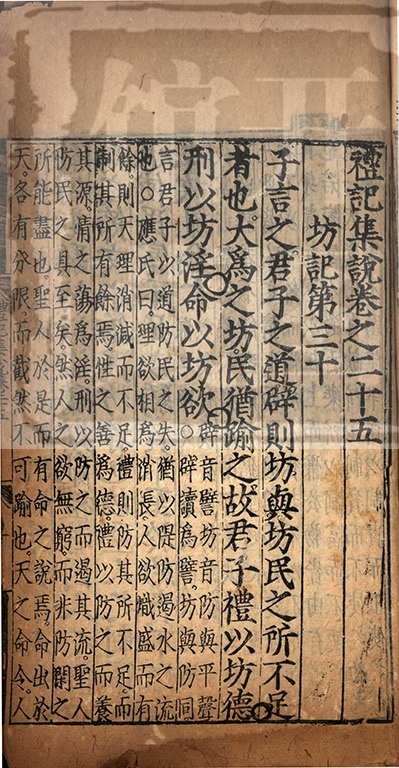 禮記集說卷之二十五
坊記第三十
子言之君子之道辟則坊與坊民之所不足
者也大爲之坊民猶踰之故君子禮以坊德
刑以坊淫命以坊欲○辟音譬坊音防與平聲
○辟讀爲譬坊與防同
言君子以道防民之失猶以隄防遏水之流
也○應氏曰理欲相爲消長人欲熾盛而有
餘則天理消減而不足禮則防其所不足而
制其所有餘焉性之善爲德禮以防之而養
其源情之蕩爲淫刑以防之而遏其流聖人
防民之具至矣然人之欲無窮而非防閑之
所能盡也聖人於是而有命之說焉命出於
天各有分限而截然不可踰也天之命令人